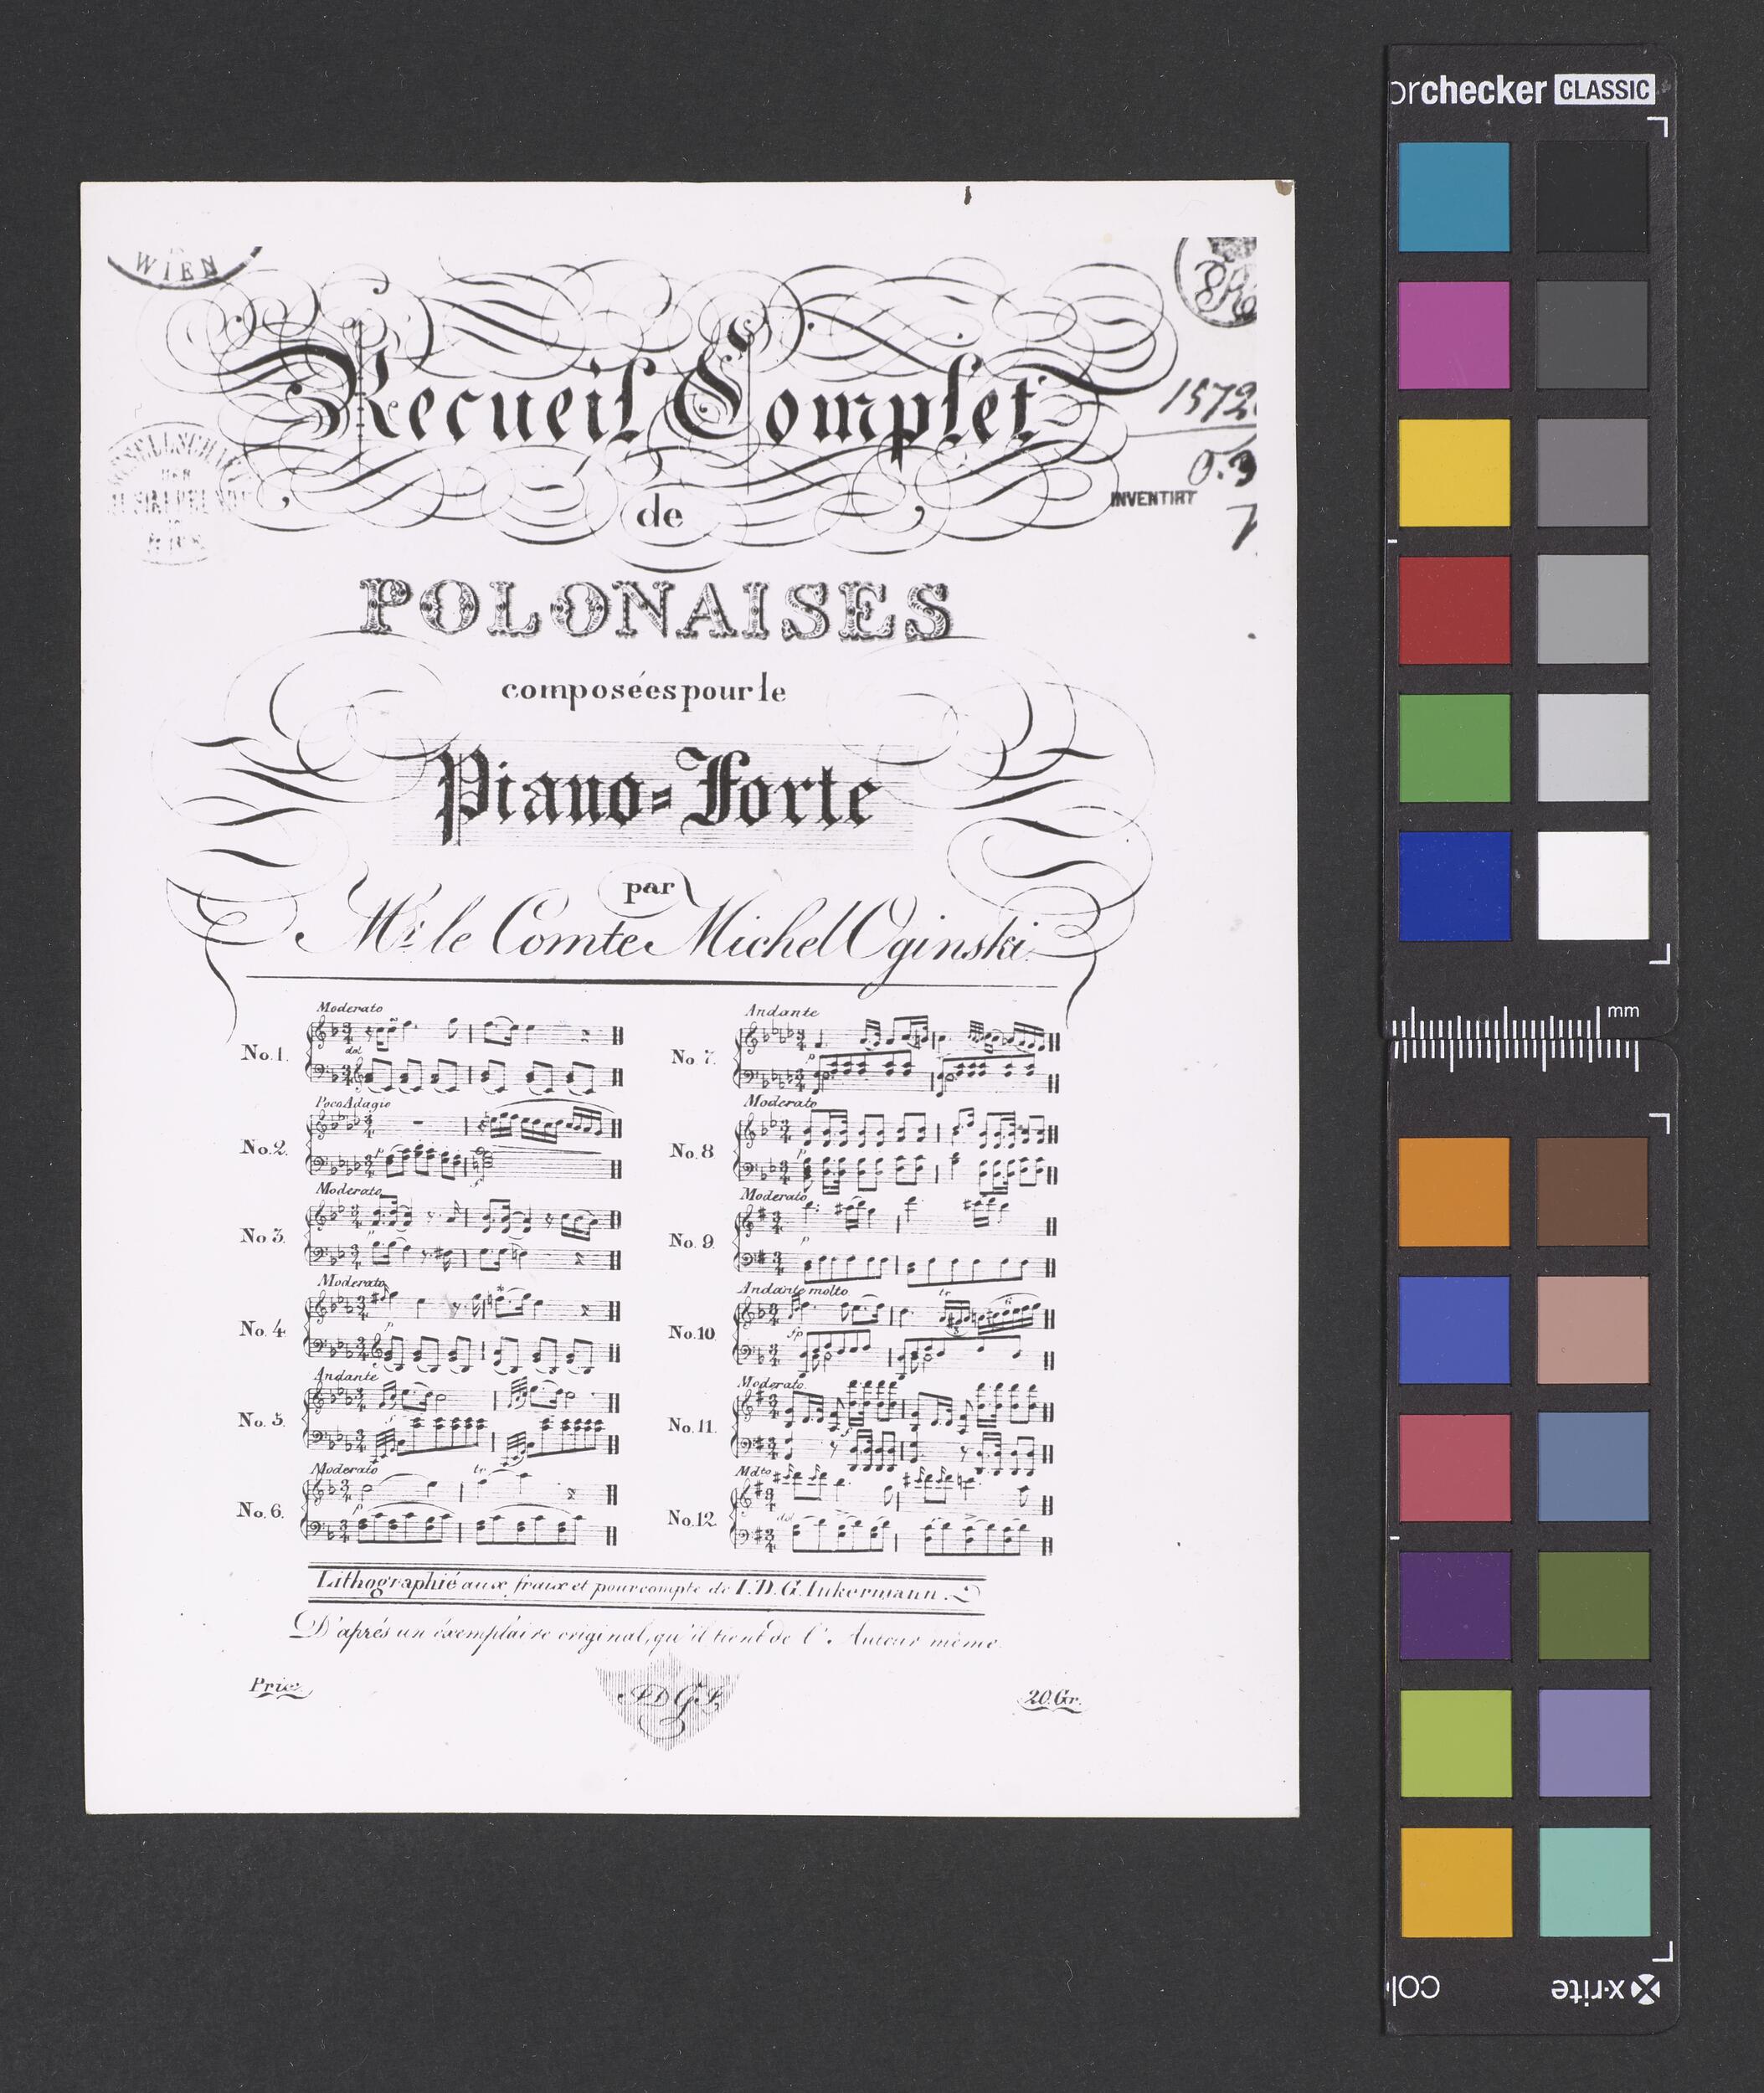 WIEN
Recueil Complet
1572
0.3
GESELLSCHAFT
DER
MUSIKFREUNDE
INVENTIRT
de
POLONAISES
composées pour le
Piano=Forte
par
Mr. le Comte Michel Oginski.
Moderato
No. 1.
dol
Poco Adagio
No. 2.
p
Moderato
No 3.
p
Moderato
No. 4
p
Andante
No. 5.
Moderato
tr
No. 6.
p
Andante
No 7.
p
Moderato
No. 8
p
Moderato
No. 9
p
Andante molto
tr
No. 10
fp
Moderato
No. 11.
Mdto
No. 12.
dol
Lithographié aux fraix et pour compte de I. D. G. Inkermann.
D'aprés un éxemplaire original, qu'il tient de l'Auteur même.
Prix
20. Gr.
orchecker CLASSIC
mm
x-rite
col